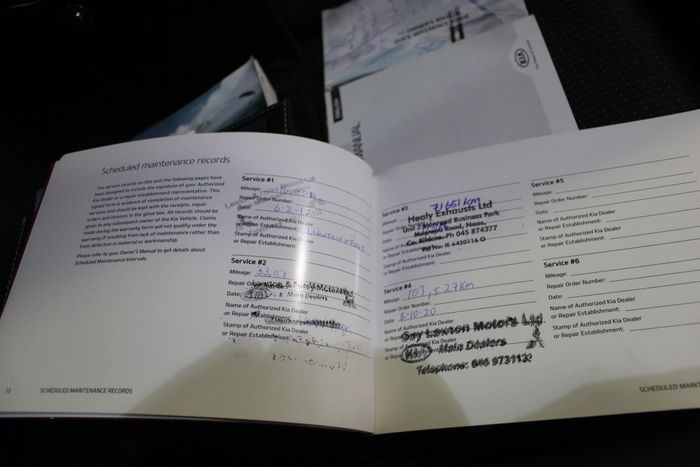 OWNER'S MANUAL
QUICK REFERENCE GUIDE
KIA
MANUAL
Scheduled maintenance records
The service records on this and the following pages have
been designed to include the signature of your Authorized
Kia Dealer or a repair establishment representative. This
signed form is evidence of completion of maintenance
services and should be kept with the receipts, repair
orders and invoices in the glove box. All records should be
given to any subsequent owner of the Kia Vehicle. Claims
made during the warranty term will not qualify under the
warranty if resulting from lack of maintenance rather than
from defective in material or workmanship.
Please refer to your Owner's Manual to get details about
Scheduled Maintenance Intervals.
12 SCHEDULED MAINTENANCE RECORDS
Service #1
Mileage:
Repair Order Number
Date:
Name of Authorized Kia Dealer
or Repair Establishment:
Stamp of Authorized Kia Dealer
or Repair Establishment:
Service #2
Mileage: 33,157
Repair Order
Date: Main Dealers
Name of Authorized Kia Dealer
or Repair Establishment:
Stamp of Authorized Kia Dealer
or Repair Establishment:
Service #3
Mileage: 71,651 km
Healy Exhausts Ltd
Unit 2 Monread Business Park
Monread Road, Naas,
Co. Kildare. Ph 045 874377
Vat No: IE 6420116 O
or Repair Establishment:
Service #4
Mileage: 103,527km
Repair Order Number:
Date: 8-10-20
Name of Authorized Kia Dealer
or Repair Establishment:
Stamp of Authorized Kia
or Repair
Gay Lawson Motors Ltd
KIA Main Dealers
Telephone: 045
Service #5
Mileage:
Repair Order Number:
Date:
Name of Authorized Kia Dealer
or Repair Establishment:
Stamp of Authorized Kia Dealer
or Repair Establishment:
Service #6
Mileage:
Repair Order Number:
Date:
Name of Authorized Kia Dealer
or Repair Establishment:
Stamp of Authorized Kia Dealer
or Repair Establishment:
SCHEDULED MAINT